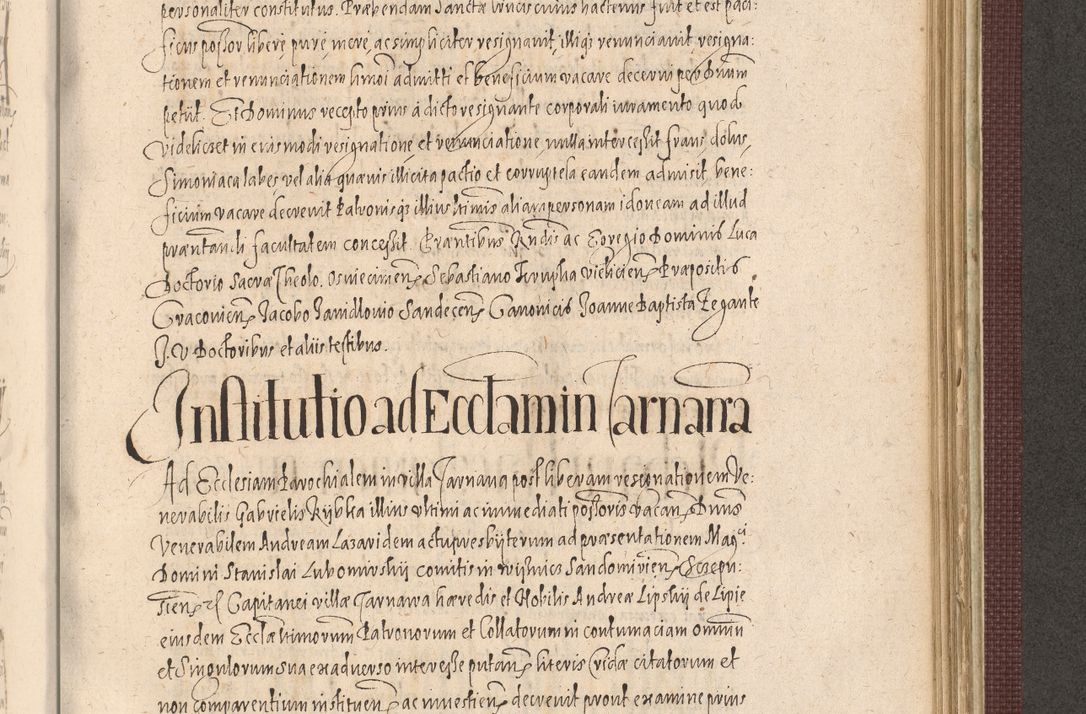 personaliter constitutus. Præbendam Sanctæ Crucis cuius hactenus fuit et est paci:
ficus possor libere pure mere, ac simpliciter resignauit, illiq; renunciauit resigna:
tionem et renunciationem hmoi admitti et beneficium vacare decerni per Dnum
petiit. Et Dominus recepto prius à dicto resignante corporali iuramento quod
videlicet in eiusmodi resignatione et renunciatione, nulla intercessit fraus dolus,
Simoniaca labes vel alia quæuis illicita pactio et corruptela eandem admisit, bene:
ficium vacare decreuit Patronisq; illius ltimis aliam personam idoneam ad illud
præntandi facultatem concessit. Præntibus Rndis ac Egregio Dominis Luca
Doctorio Sacræ Theolo. Osuiecimen, Sebastiano Vielicien, Præpositis
Cracouien, Jacobo Janidlouio Sandecen, Canonicis Joanne Baptista Legante
J. V Doctoribus et aliis testibus.
Institutio ad Ecclam in Tarnaua
Ad Ecclesiam Parochialem in villa Tarnaua post liberam resignationem Ve:
nerabilis Gabrielis Rybka illius vltimi ac immediati possoris vacan, Dnus
Venerabilem Andream Lazaridem actu presbyterum ad præsentationem Magci
Domini Stanislai Lubomirskij comitis in Wisnicz Sandomirien, Scepu:
sien, Capitanei villæ Tarnawa hæredis et Nobilis Andreæ Lipskij de Lipie
eiusdem Ecclæ ltimorum Patronorum et Collatorum in contumaciam omnium
et Singulorum sua ex aduerso interesse putan, literis Cridæ citatorum et
non comparentium instituen, ac inuestien, decreuit prout examine prius